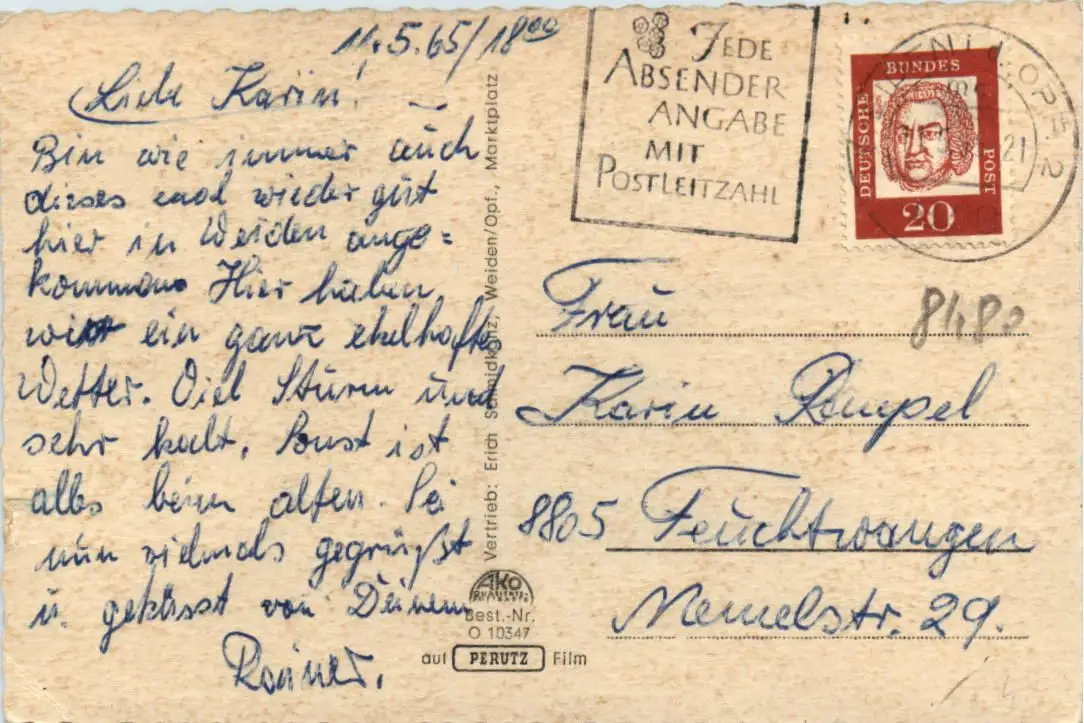 11.5.65/18⁰⁰
Liebe Karin!
Bin wie immer auch
dieses mal wieder gut
hier in Weiden ange=
kommen Hier haben
wir ein ganz ekelhaftes
Wetter. Viel Sturm und
sehr kalt. Sonst ist
alles beim alten. Sei
nun vielmals gegrüßt
u. geküsst von Deinem
Rainer.
Vertrieb: Erich Schmidkonz, Weiden/Opf., Marktplatz
AKO
Best.-Nr.
O 10347
auf PERUTZ Film
JEDE
ABSENDER-
ANGABE
MIT
POSTLEITZAHL
DEUTSCHE
BUNDES
POST
20
21
2
8480
Frau
Karin Rompel
8805 Feuchtwangen
Memelstr. 29.